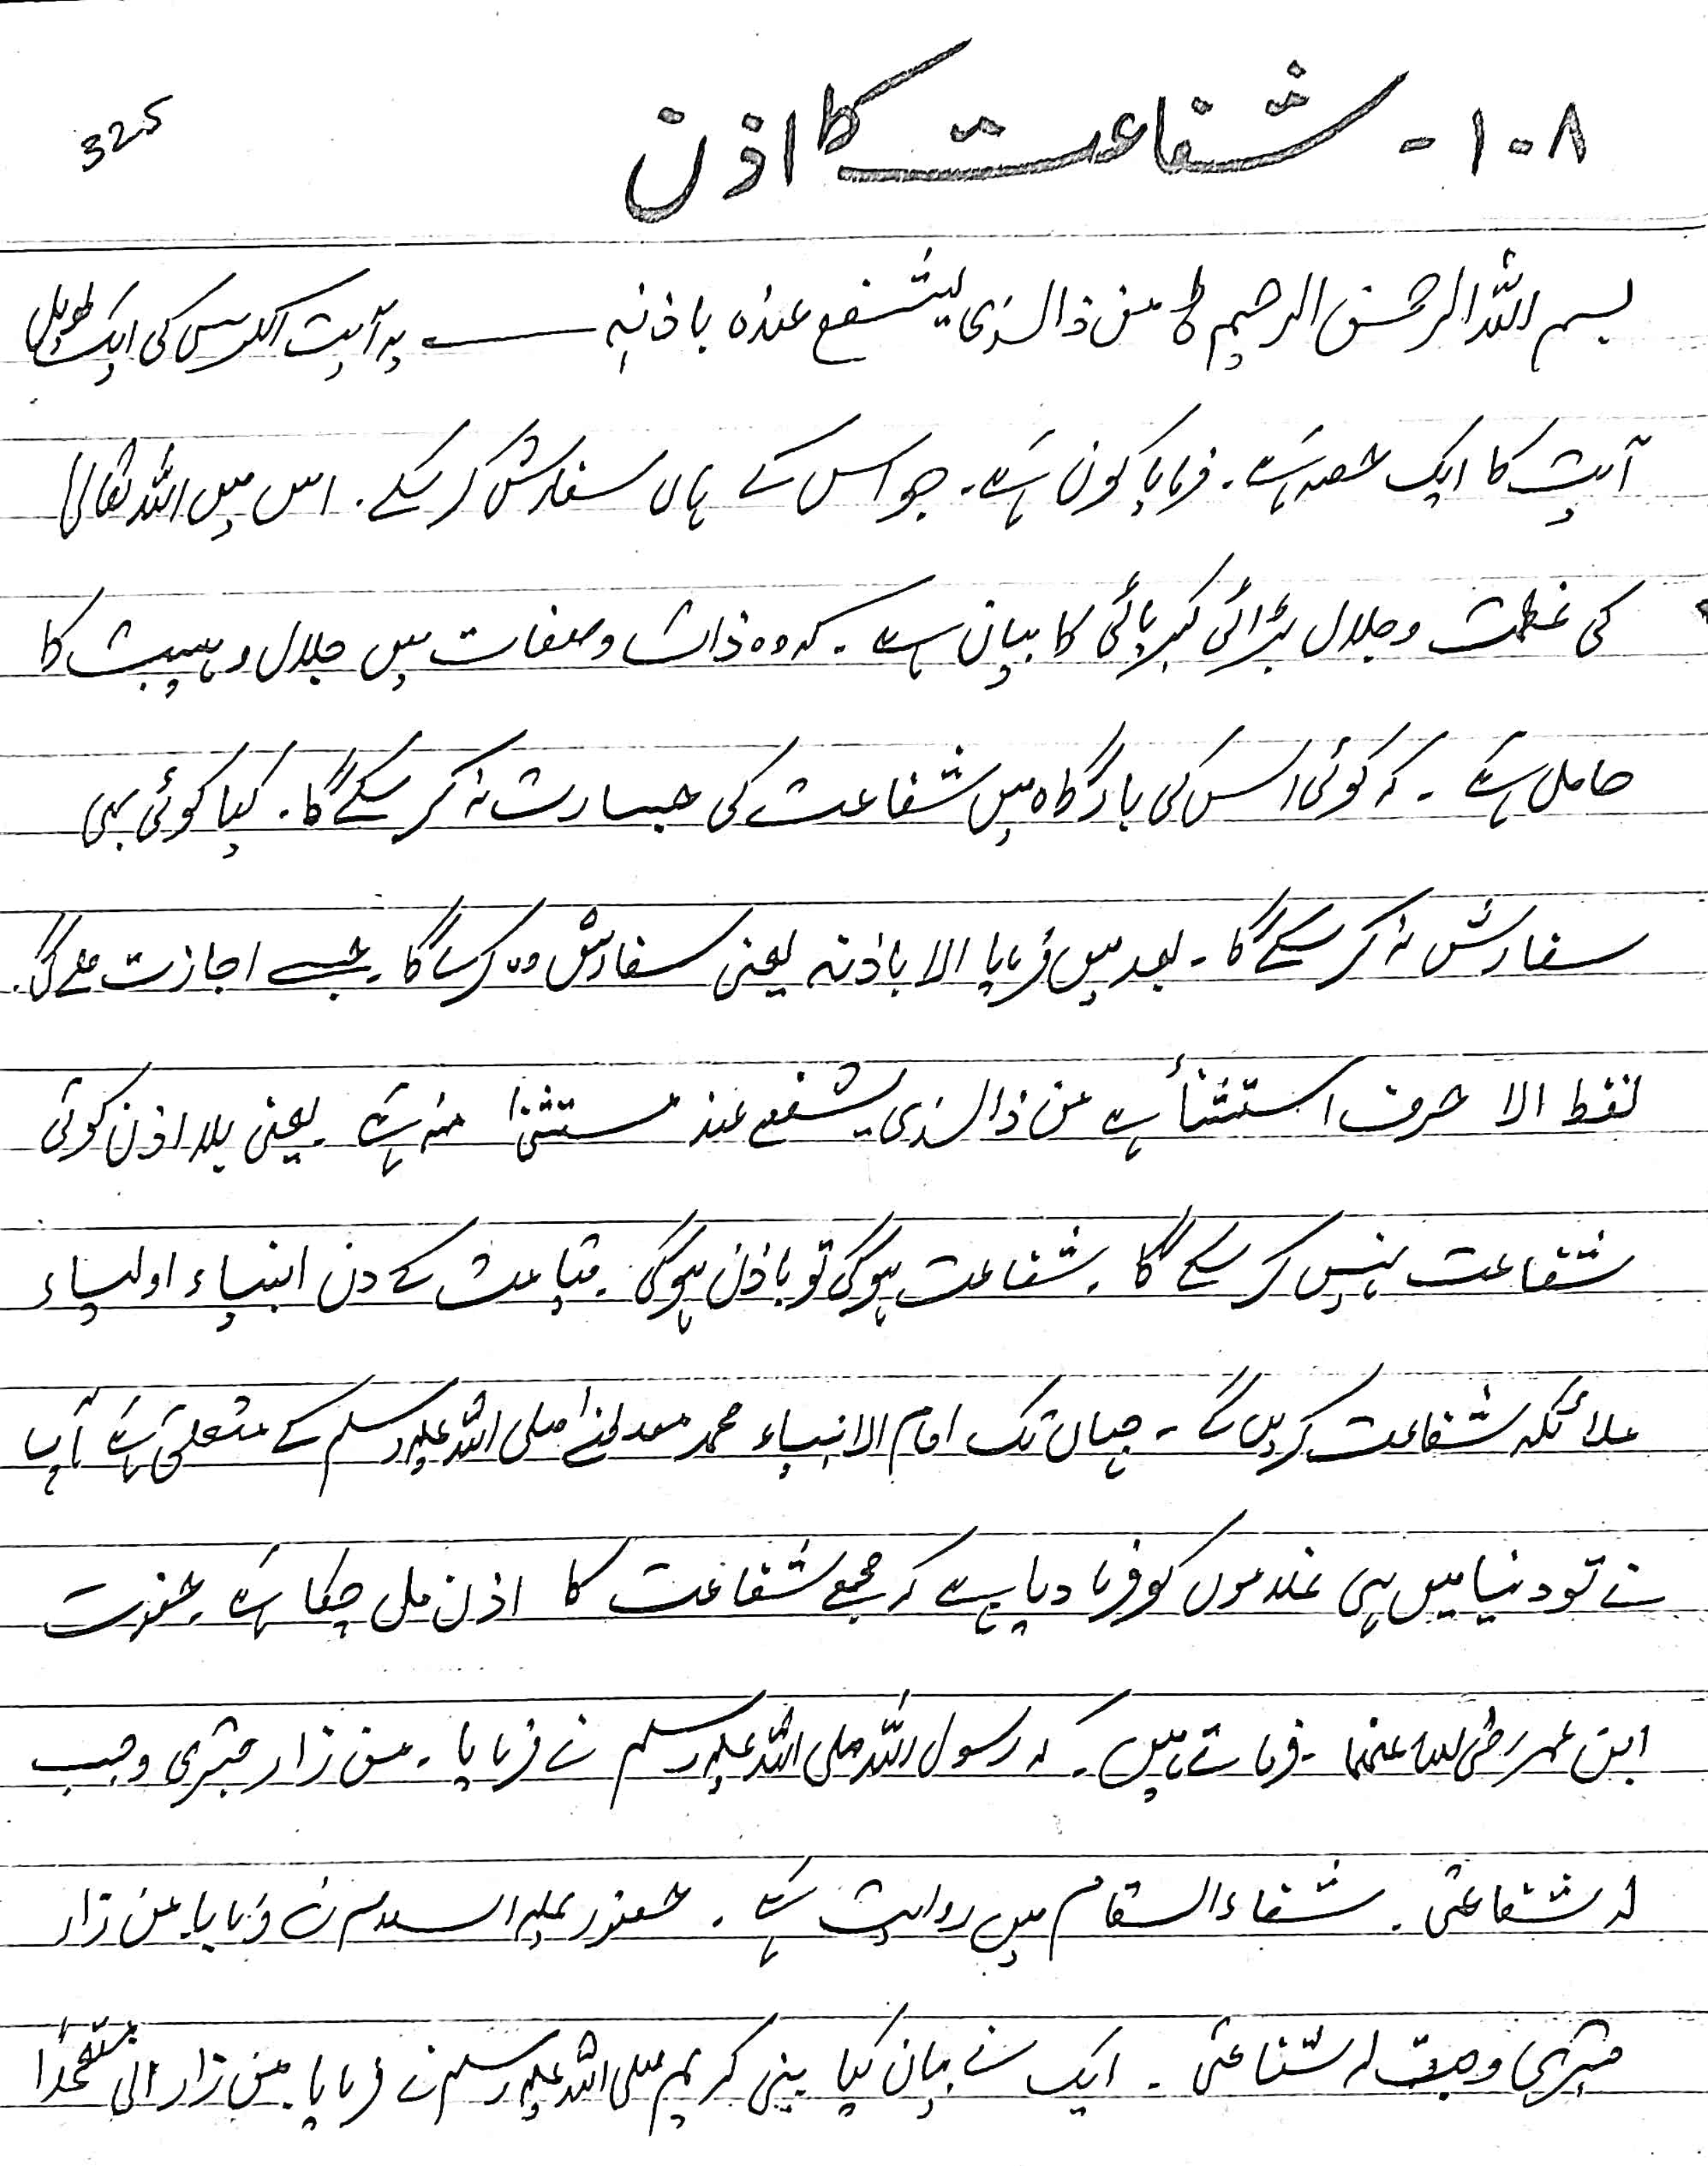 325
۱۰۸ - شفاعت کا اذن
بسم اللہ الرحمن الرحیم ط من ذالذی یشفع عندہ باذنہ ــــ یہ آیت الکرسی کی ایک طویل
آیت کا ایک حصہ ہے ۔ فرمایا کون ہے ۔ جو اس کے ہاں سفارش کر سکے ۔ اس میں اللہ تعالیٰ
کی عظمت و جلال بڑائی کبریائی کا بیان ہے ۔ کہ وہ ذات و صفات میں جلال و ہیبت کا
حامل ہے ۔ کہ کوئی اس کی بارگاہ میں شفاعت کی جسارت نہ کر سکے گا ۔ کیا کوئی بھی
سفارش نہ کر سکے گا ۔ بعد میں فرمایا الا باذنہ یعنی سفارش وہ کرے گا ۔ جسے اجازت ملے گی ۔
لفظ الا حرف استثنأ ہے من ذالذی یشفع عند مستثنیٰ منہ ہے ۔ یعنی بلا اذن کوئی
شفاعت نہیں کر سکے گا ۔ شفاعت ہو گی تو باذن ہو گی ۔ قیامت کے دن انبیاء اولیاء
ملائکہ شفاعت کریں گے ۔ جہاں تک امام الانبیاء محمد مصطفےٰ صلی اللہ علیہ وسلم کے متعلق ہے آپ
نے تو دنیا میں ہی غلاموں کو فرما دیا ہے کہ مجھے شفاعت کا اذن مل چکا ہے ۔ حضرت
ابن عمر رضی اللہ عنہما ۔ فرماتے ہیں ۔ کہ رسول اللہ صلی اللہ علیہ وسلم نے فرمایا ۔ من زار قبری وجب
لہ شفاعتی ۔ شفاء السقام میں روایت ہے ۔ حضور علیہ السلام نے فرمایا من زار
قبری وجبت لہ شفاعتی ۔ ایک نے بیان کیا نبی کریم صلی اللہ علیہ وسلم نے فرمایا من زار